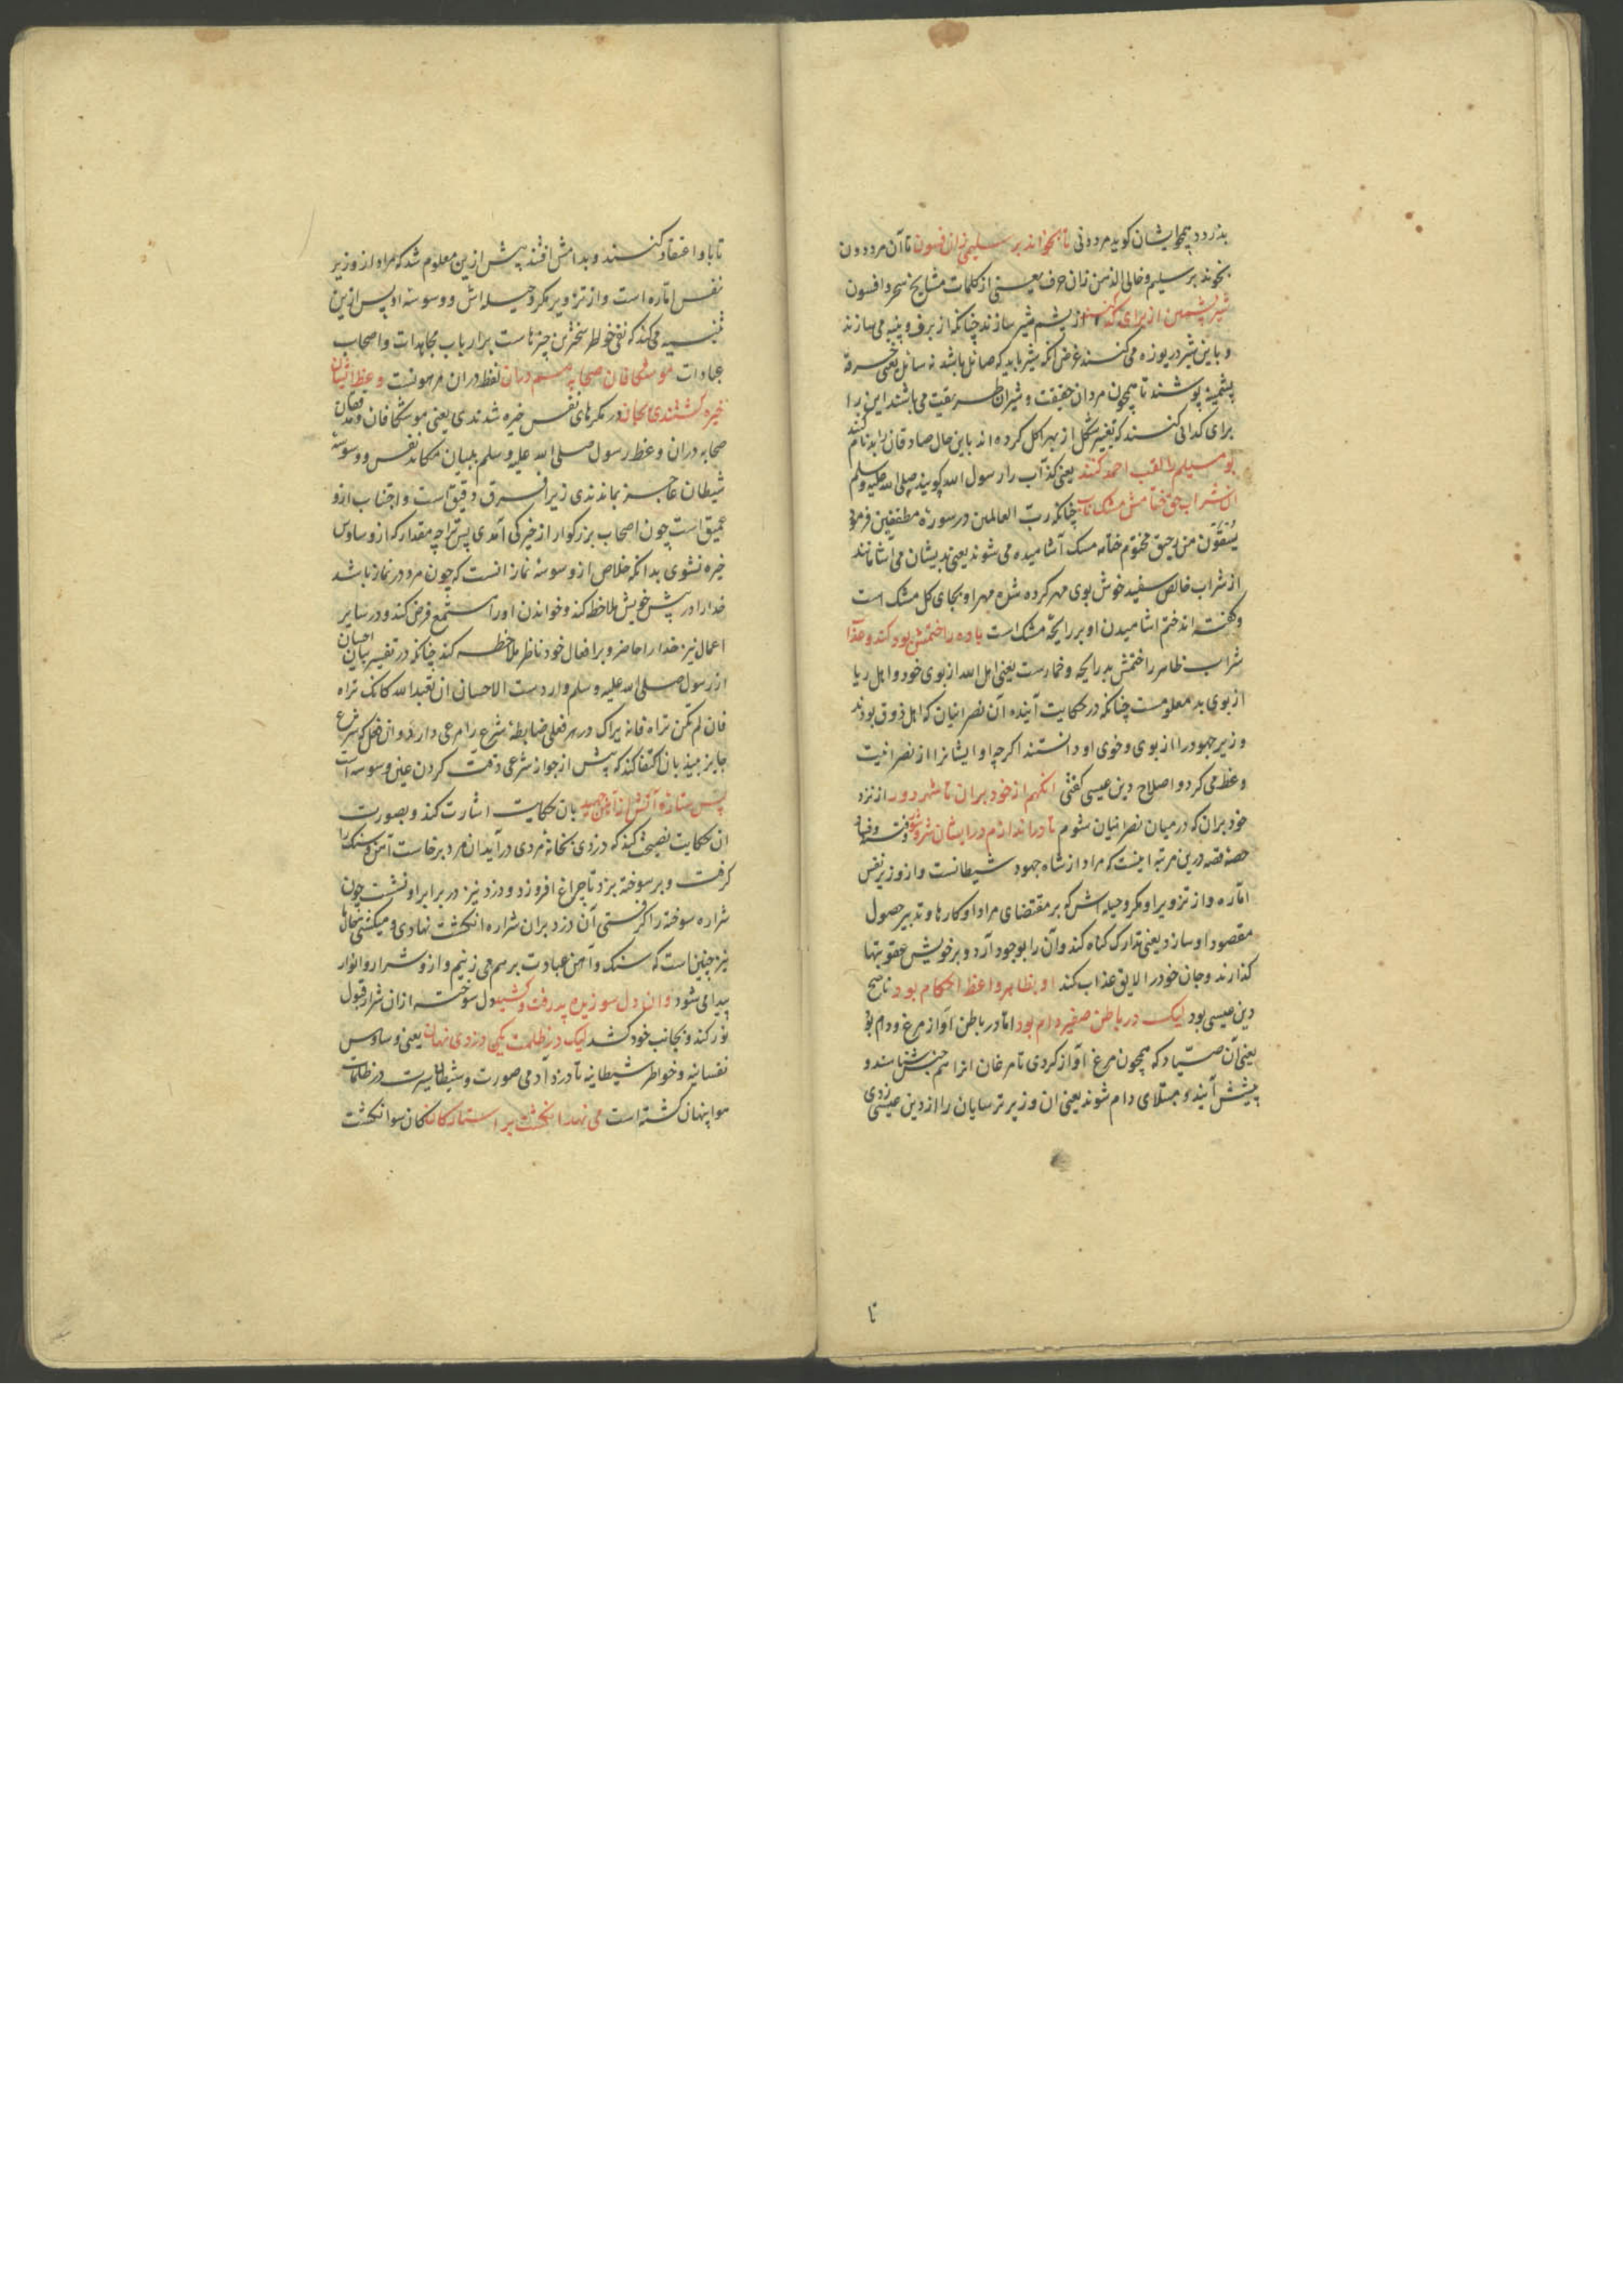 بدزدد همچو ایشان کوید مرد دنی تا بخواند بر سلیمی زان فسون تا آن مرد دون
بخوند بر سلیم و خالی الذهن زان حرف یعنی از کلمات مشایخ سحر و افسون
شیر پشمین از برای کد کنند از پشم شیر سازند چنانکه از برف و پنبه می سازند
و باین شیر دریوزه می کنند غرض انکه شیر باید که صائل باشد نه سائل یعنی خرقه
پشمینه پوشند تا همچون مردان حقیقت و شیران طریقت می باشند این را
برای کدائی کنند که تغییر شکل از بهر اکل کرده اند باین حال صادقان را بدنام کنند
بو مسیلم را لقب احمد کنند یعنی کذّاب را رسول الله کویند صلی الله علیه وسلم
ان شراب حق ختامش مشک ناب چنانکه ربّ العالمین در سورۀ مطففین فرمود
یسقون من رحیق مختوم ختامه مسک آشامیده می شوند یعنی بدیشان می آشامانند
از شراب خالص سفید خوش بوی مهر کرده شده مهر او بجای کل مشک است
و کفته اند ختم اشامیدن او بر رایحۀ مشک است باده را ختمش بود کند و عذاب
شراب ظاهر را ختمش بد رایحه و خمارست یعنی اهل الله از بوی خود و اهل ریا
از بوی بد معلومست چنانکه در حکایت آینده آن نصرانیان که اهل ذوق بودند
وزیر جهود را از بوی و خوی او دانستند اکرچه او ایشانرا از نصرانیت
وعظ می کرد و اصلاح دین عیسی کفتی انکهم از خود بران تا شهر دور از نزد
خود بران که در میان نصرانیان شوم تا دراندازم در ایشان شر و شور و فتنه و فساد
حصۀ قصه درین مرتبه اینست که مراد از شاه جهود شیطانست و از وزیر نفس
امّاره و از تزویر او مکر و حیله اش که بر مقتضای مراد او کارها و تدبیر حصول
مقصود او سازد یعنی تدارک کناه کند و آن را بوجود آرد و بر خویش عقوبتها
کذارند و جان خود را لایق عذاب کند او بظاهر واعظ احکام بود ناصح
دین عیسی بود لیک در باطن صفیر و دام بود امّا در باطن آواز مرغ و دام بود
یعنی آن صیّاد که همچون مرغ آواز کردی تا مرغان انرا هم جنسش نامند و
پیشش آیند و مبتلای دام شوند یعنی ان وزیر ترسایان را از دین عیسی زدی
تا
تا باو اعتقاد کنند و بدامش افتند پیش ازین معلوم شد که مراد از وزیر
نفس امّاره است و از تزویر مکر و حیله اش و وسوسۀ او پس ازین
تنبیه می کند که نفی خواطر سخترین چیزهاست بر ارباب مجاهدات و اصحاب
عبادات مو شکافان صحابه هم دران لفظ دران مرهونست وعظ ایشان
خیره کشتندی بجان در مکرهای نفس خیره شدندی یعنی موشکافان و مدققان
صحابه دران وعظ رسول صلی الله علیه وسلم ببیان مکاید نفس و وسوسۀ
شیطان عاجز بماندندی زیرا فرق دقیق است و اجتناب ازو
عمیق است چون اصحاب بزرکوار از خیرکی آمدی پس ترا چه مقدار که از وساوس
خیره نشوی بدانکه خلاص از وسوسۀ نماز انست که چون مرد در نماز باشد
خدا را در پیش خویش ملاحظه کند و خواندن او را مستمع فرض کند و در سایر
اعمال نیز خدا را حاضر و بر افعال خود ناظر ملاحظه کند چنانکه در تفسیر بیان احسان
از رسول صلی الله علیه وسلم واردست الاحسان ان تعبد الله کانک تراه
فان لم تکن تراه فانه یراک در هر فعلی ضابطۀ شرع را مرعی دارد و ان فعل که شرع
جایز بیند بان اکتفا کند که پیش از جواز شرعی دقت کردن عین وسوسه است
پس ستاره آتش از آهن جهید بان حکایت اشارت کند و بصورت
ان حکایت نصیحت کند که دزدی بخانۀ مردی درآید ان مرد برخاست آهن و سنک را
کرفت و بر سوخته بزد تا چراغ افروزد و دزد نیز در برابر او نشست چون
شراره سوخته را کرفتی آن دزد بران شراره انکشت نهادی و میکشتی بحال ما
نیز چنین است که سنک و آهن عبادت بر هم می زنیم و ازو شرار و انوار
پیدا می شود وان دل سوزیده پذرفت و کشید دل سوخته ازان شرار قبول
نور کند و بجانب خود کشد لیک در ظلمت یکی دزدی نهان یعنی وساوس
نفسانیه و خواطر شیطانیه تا دزد آدمی صورت و شیطان سیرت در ظلمات
هوا پنهان کشته است می نهد انکشت بر استارکان کان سوا نکشت